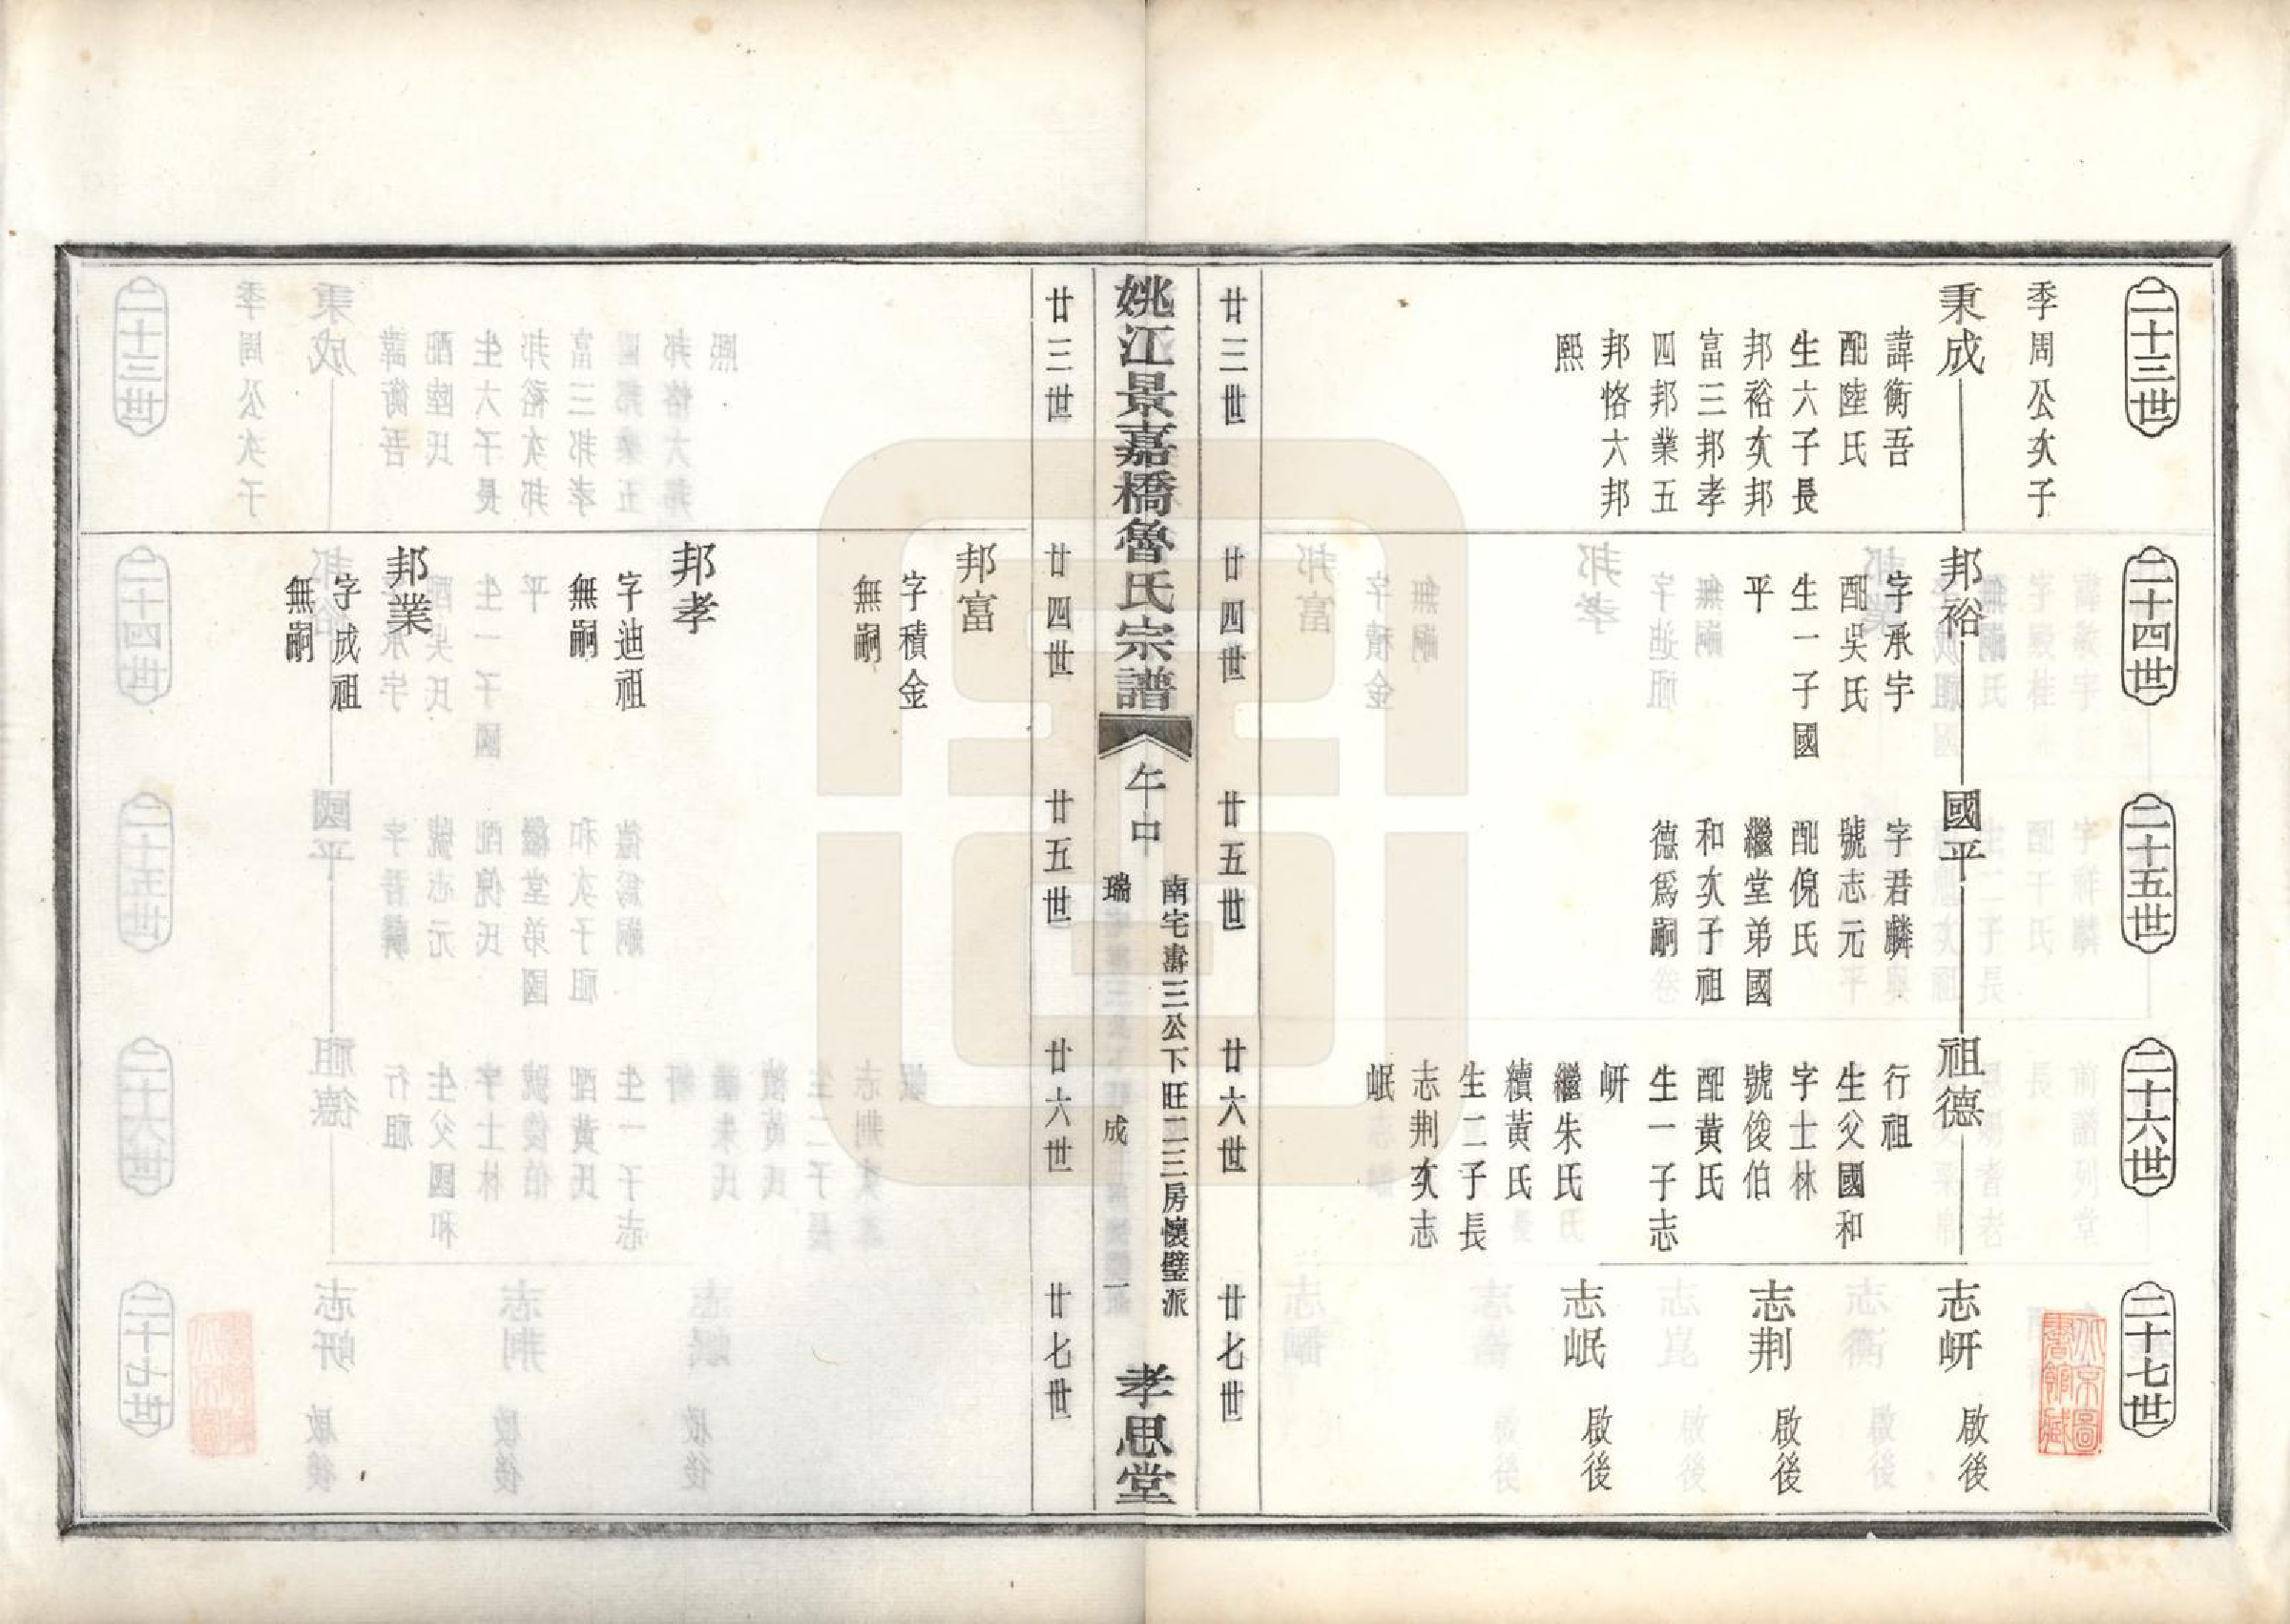 二十三世
季周公次子
秉成
諱衡吾
配陸氏
生六子長
邦裕次邦
富三邦孝
四邦業五
邦恪六邦
熙
二十四世
邦裕
字承宇
配吳氏
生一子國
平
二十五世
國平
字君麟
號志元
配倪氏
繼堂弟國
和次子祖
德爲嗣
二十六世
祖德
行祖
生父國和
字士林
號俊伯
配黃氏
生一子志
岍
繼朱氏
續黃氏
生二子長
志荆次志
岷
二十七世
志岍 啟後
志荆 啟後
志岷 啟後
廿三世 廿四世 廿五世 廿六世 廿七世
姚江景嘉橋魯氏宗譜
午中
南宅壽三公下旺二三房懷璧派
瑞 成 一
孝思堂
廿三世 廿四世 廿五世 廿六世 廿七世
邦富
字積金
無嗣
邦孝
字迪祖
無嗣
邦業
字成祖
無嗣